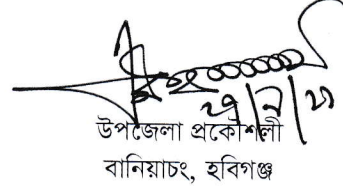 উপজেলা প্রকৌশলী
বানিয়াচং, হবিগঞ্জ